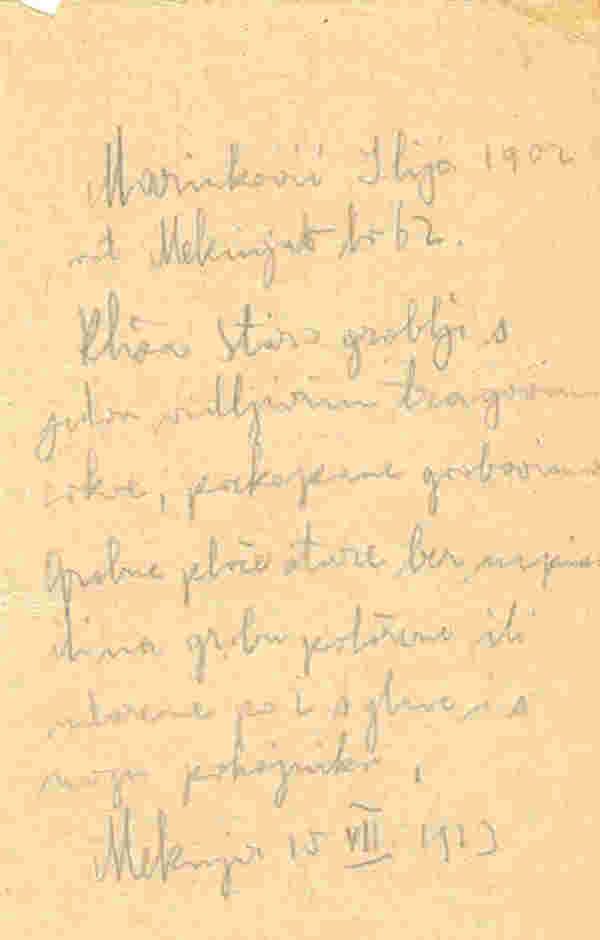 Marinković Ilija 1902
Mekinjar br 62.
staro groblje s
jedva vidljivim tragovima
crkve, prekopane grobovima
Grobne ploče stare, bez natpisa
ili na grobu položene ili
po 2 s glave i s
nogu pokojnika.
Mekinjar 15 VII 19